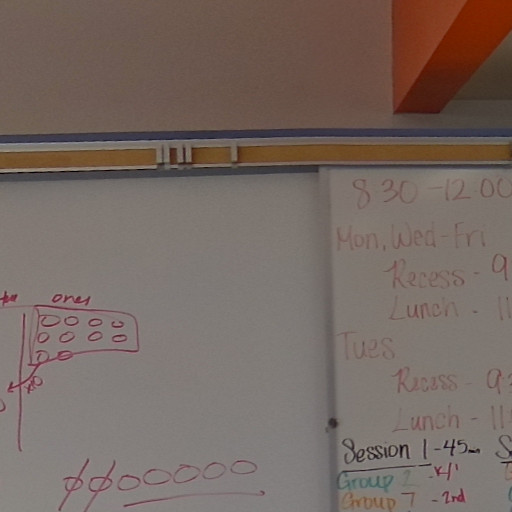 ones
8 30-12.00
Mon, Wed-Fri
Recess - 9
Lunch - 11
Tues
Recess - 9
Lunch - 11
Session 1-45m S
Group 2 -K/1
Group 7 -2nd